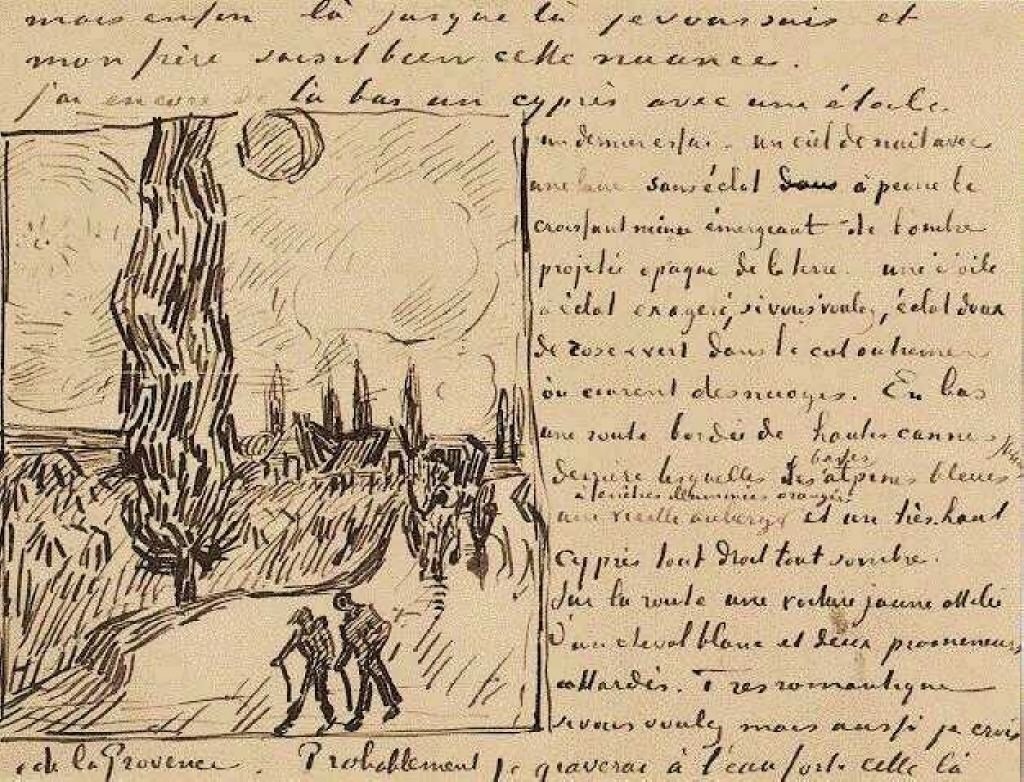 mais enfin là jusque là je voussais et
mon frère saisit bien cette nuance.
j'ai encore de là bas un cyprès avec une étoile.
un dernier essai – un ciel de nuit avec
une lune sans éclat dans à peine le
croissant mince émergeant de l'ombre
projetée opaque de la terre. une étoile
à éclat exageré, si vous voulez, éclat doux
de rose & vert dans le ciel outremer
où courent des nuages. En bas
une route bordée de hautes cannes
derrière lesquelles les basses alpines bleues
à fenêtres illuminées orangées
une vieille auberge et un très haut
cyprès tout droit tout sombre.
Sur la route une voiture jaune attelée
d'un cheval blanc et deux promeneurs
attardés. Très romantique
si vous voulez mais aussi je crois
de la Provence. Probablement je graverai à l'eau forte celle là